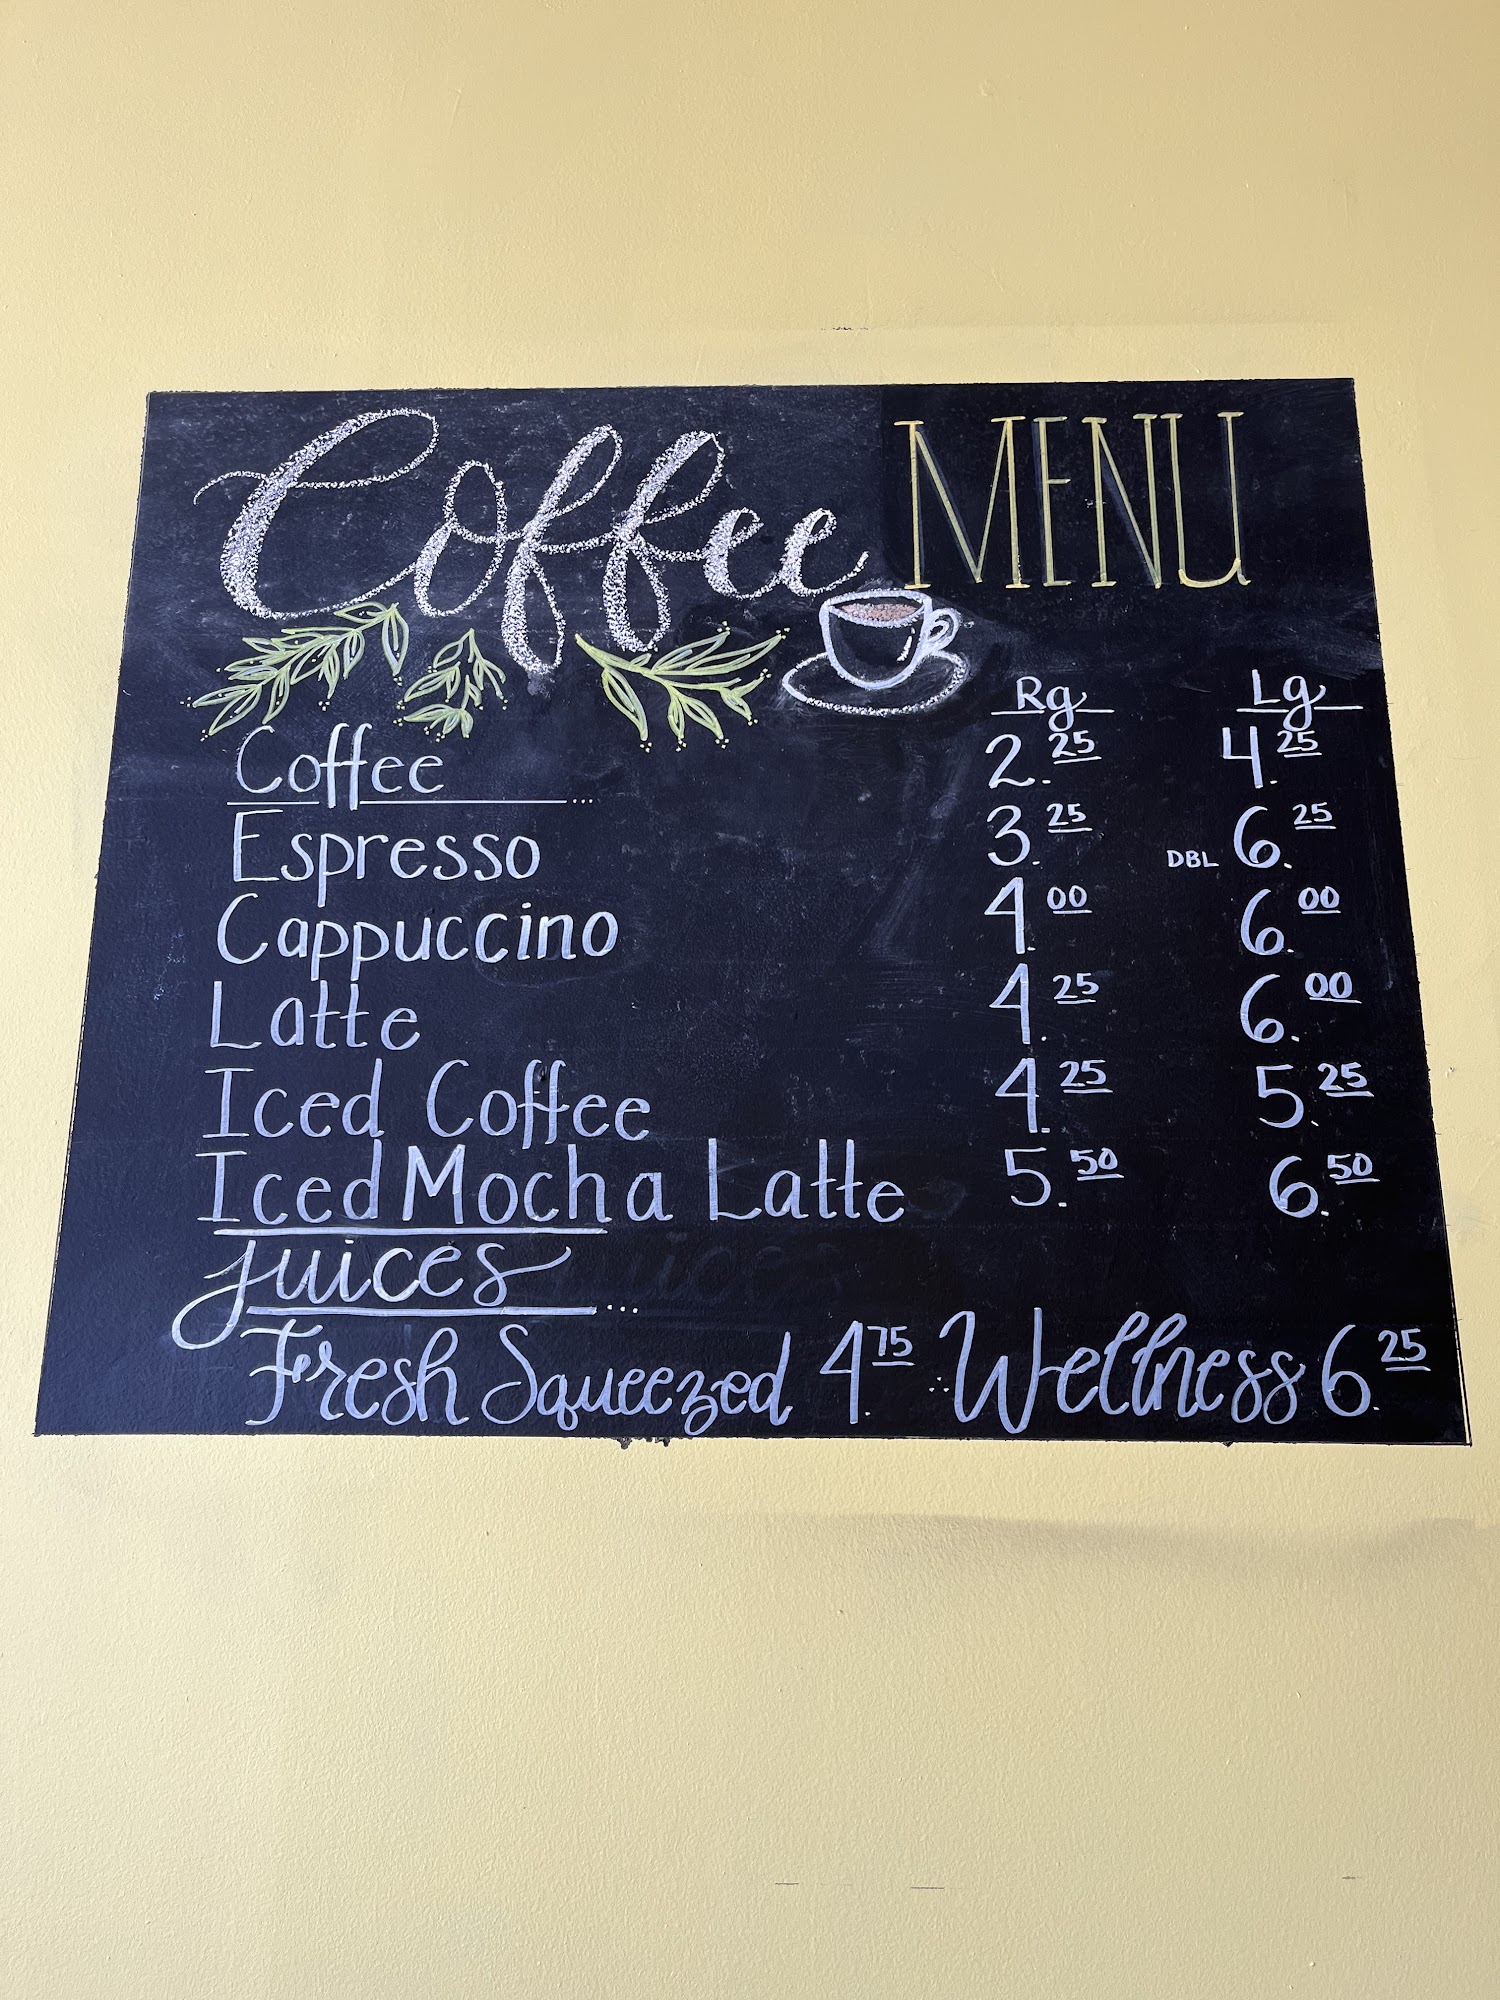 Coffee MENU
Rg Lg
Coffee ... 2.25 4.25
Espresso 3.25 DBL 6.25
Cappuccino 4.00 6.00
Latte 4.25 6.00
Iced Coffee 4.25 5.25
Iced Mocha Latte 5.50 6.50
Juices ...
Fresh Squeezed 4.75 Wellness 6.25